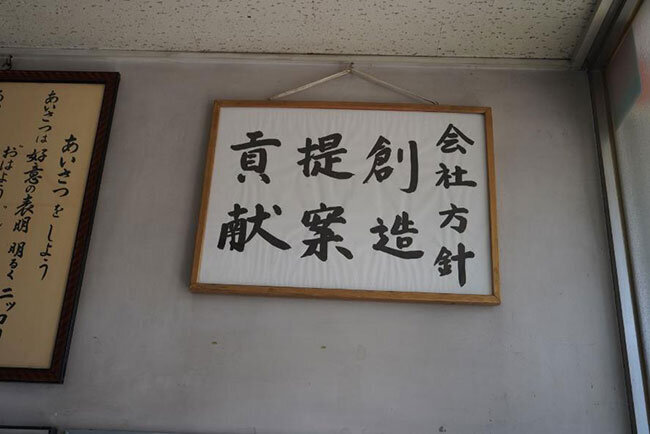 会社方針
創造
提案
貢献
あいさつをしよう
あいさつは好意の表明
おはよう
明るく